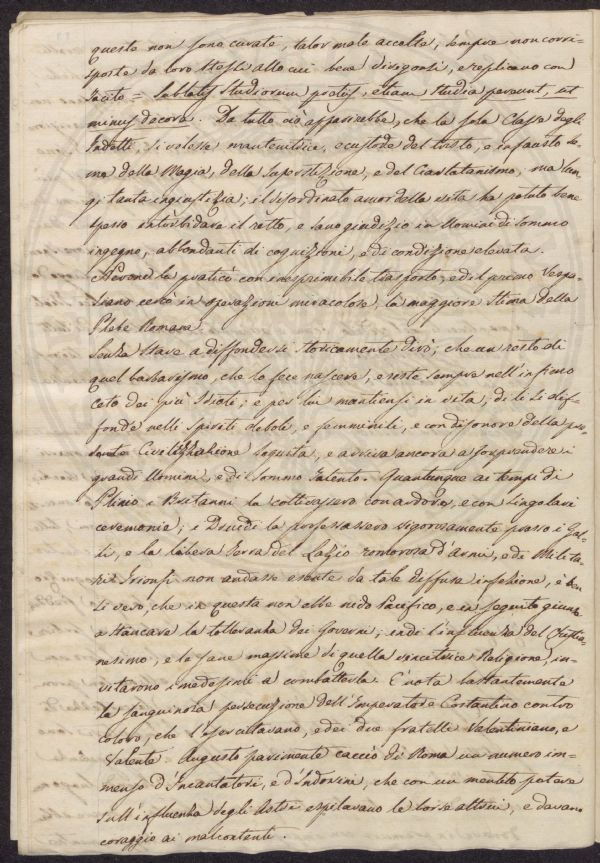 queste non sono curate, talor male accolte, sempre non corri=
sposte da loro stessi alla cui bene dirigonsi, e replicano con
Tacito = Sublatis Studiorum pretiis, etiam Studia pereunt, ut
minus decora. Da tutto ciò apparirebbe, che la sola Classe degli
Indotti, si volesse mantenitrice, e custode del tristo, e infausto se=
me della Magia, della Superstizione, e del Ciarlatanismo, ma lun=
gi tanta ingiustizia; il disordinato amor della vita ha potuto bene
spesso intorbidare il retto, e sano giudizio in Uomini di sommo
ingegno, abbondanti di cognizioni, e di condizione elevata.
Nerone la praticò con inesprimibile trasporto, ed il primo Vespa=
siano cercò in operazioni miracolose, la maggiore Stima della
Plebe Romana.
Senza stare a diffondersi storicamente dirò, che un resto di
quel barbarismo, che lo fece nascere, esiste sempre nell'infimo
ceto dei più Stati; e per lui mantiensi in vita, di lì si dif=
fonde nelli spiriti deboli, e femminili, e con disonore della pre=
sente Civilizzazione seguita, e arriva ancora a sorprendere i
grandi Uomini, e di sommo Talento. Quantunque ai tempi di
Plinio i Britanni la coltivassero con ardore, e con singolari
ceremonie; i Druidi la professassero vigorosamente presso i Gal=
li, e la libera Terra del Lazio romorosa d'Armi, e di Milita=
ri Trionfi non andasse esente da tale diffusa infezione, è ben
sì vero, che in questa non ebbe nido Pacifico, e in seguito giunse
a stancare la tolleranza dei Governi; indi l'influenza del Cristia=
nesimo, e le sane massime di quella vincitrice Religione, in=
vitarono i medesimi a combatterla. È nota bastantemente
la sanguinosa persecuzione dell'Imperatore Costantino contro
coloro, che l'esercitavano, e dei due fratelli Valentiniano, e
Valente. Augusto parimente cacciò di Roma un numero im=
menso d'Incantatori, e d'Indovini, che con un mentito potere
sull'influenza degli Astri espilavano le borse altrui, e davano
coraggio ai malcontenti.